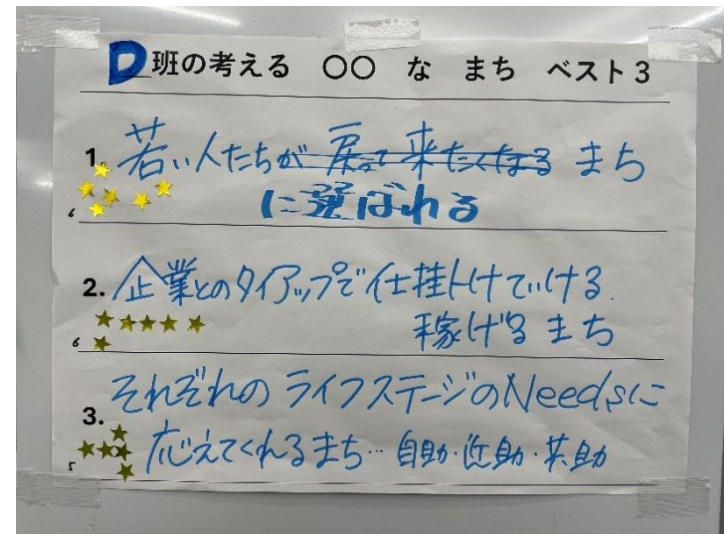 D班の考える 〇〇 な まち ベスト3
1. 若い人たちが戻って来たくなる まち
に選ばれる
6
2. 企業とのタイアップで仕掛けていける
稼げる まち
6
それぞれの ライフステージのNeedsに
3.
応えてくれるまち… 自助・近助・共助
5